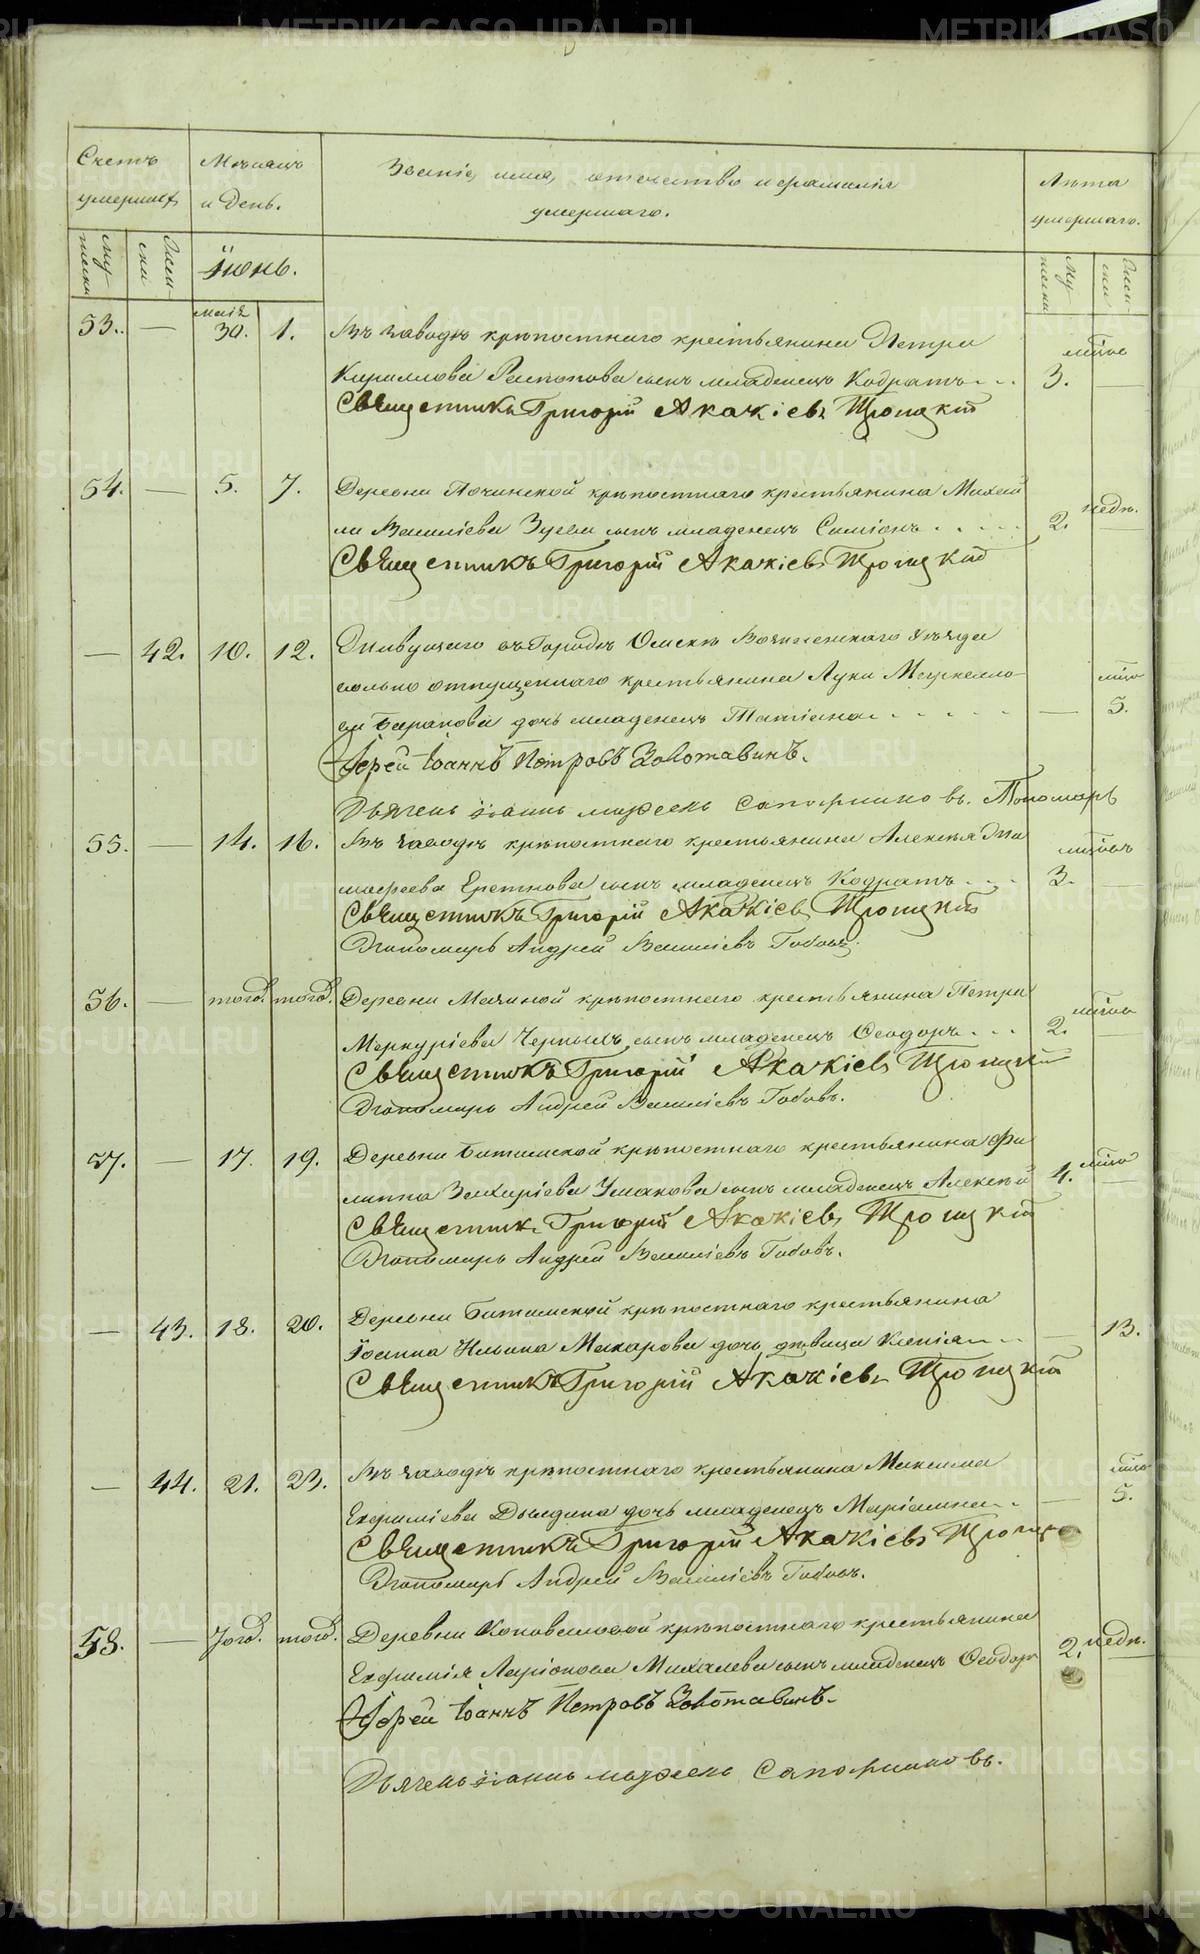 Счетъ умершихъ
Мѣсяцъ и день.
Званіе, имя, отечество и фамилія умершаго.
Лѣта умершаго.
Мужескій
Женскій
Іюнь.
Мужескій
Женскій
53. — мая 30. 1. Въ заводѣ крѣпостнаго крестьянина Петра
Кириллова сынъ младенецъ Кодратъ 3.
Священникъ Григорій Акакіевъ Троицкій
54. — 5. 7. Деревни Починской крѣпостнаго крестьянина
Васильева сынъ младенецъ Симіонъ 2. недѣ.
Священникъ Григорій Акакіевъ Троицкій
— 42. 10. 12. Живущаго въ Городѣ Омскѣ уѣзда
вольно отпущеннаго крестьянина Луки
Баранова дочь младенецъ Татіана — 5.
Іерей Іоаннъ Петровъ Золотавинъ.
Дьячекъ Іоаннъ Сапожниковъ. Пономарь
55. — 14. 16. Въ заводѣ крѣпостнаго крестьянина Алексѣя Ти
мофеева Еретнова сынъ младенецъ Кодратъ 3.
Священникъ Григорій Акакіевъ Троицкій
Пономарь Андрей Васильевъ
56. — тогож. тогож. Деревни крѣпостнаго крестьянина Петра
Меркуріева Черныхъ сынъ младенецъ Ѳеодоръ 2.
Священникъ Григорій Акакіевъ Троицкій
Пономарь Андрей Васильевъ
57. — 17. 19. Деревни Битимской крѣпостнаго крестьянина Фи
липпа Захаріева Ушакова сынъ младенецъ Алексѣй 4.
Священникъ Григорій Акакіевъ Троицкій
Пономарь Андрей Васильевъ
— 43. 18. 20. Деревни Битимской крѣпостнаго крестьянина
Іоанна Ильина Макарова дочь дѣвица Ксенія — 13.
Священникъ Григорій Акакіевъ Троицкій
— 44. 21. 23. Въ заводѣ крѣпостнаго крестьянина Максима
Ехиміева дочь младенецъ Маріамна — 5.
Священникъ Григорій Акакіевъ
Пономарь Андрей Васильевъ
58. — тогож. тогож. Деревни Коноваловой крѣпостнаго крестьянина
Ехфимія Ларіонова Михалева сынъ младенецъ Ѳеодоръ 2. недѣ.
Іерей Іоаннъ Петровъ Золотавинъ.
Дьячекъ Іоаннъ Сапожниковъ.
METRIKI.GASO-URAL.RU